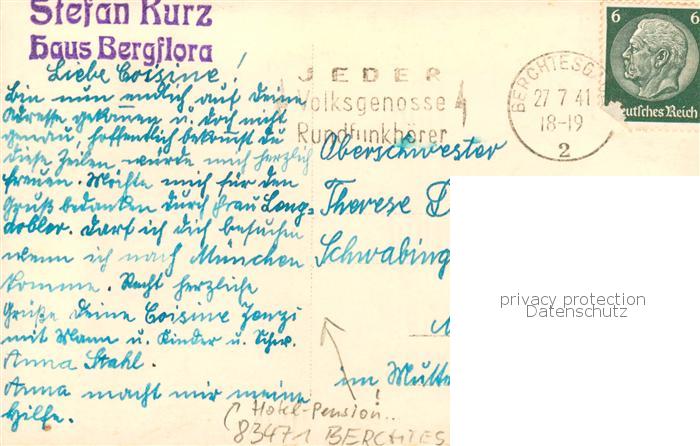 Stefan Kurz
Haus Bergflora
Liebe Coisine!
Bin nun endlich auf deine
Adresse gekomen u. doch nicht
genau, hoffentlich bekomst du
diese Zeilen, würde mich herzlich
freuen. Möchte mich für den
Gruß bedanken durch Frau Lang-
dobler. Darf ich dich besuchen
wenn ich nach München
komme. Recht herzliche
Grüße deine Coisine Zenzi
mit Mann u. Kinder u. Schw.
Anna Stahl.
Anna macht mir meine
Hilfe.
JEDER
Volksgenosse
Rundfunkhörer
BERCHTESG
27.7.41
18-19
2
6 6
Deutsches Reich
Oberschwester
Therese
Schwabing
im Mutte
Hotel-Pension..
83471 BERCHTES
privacy protection
Datenschutz